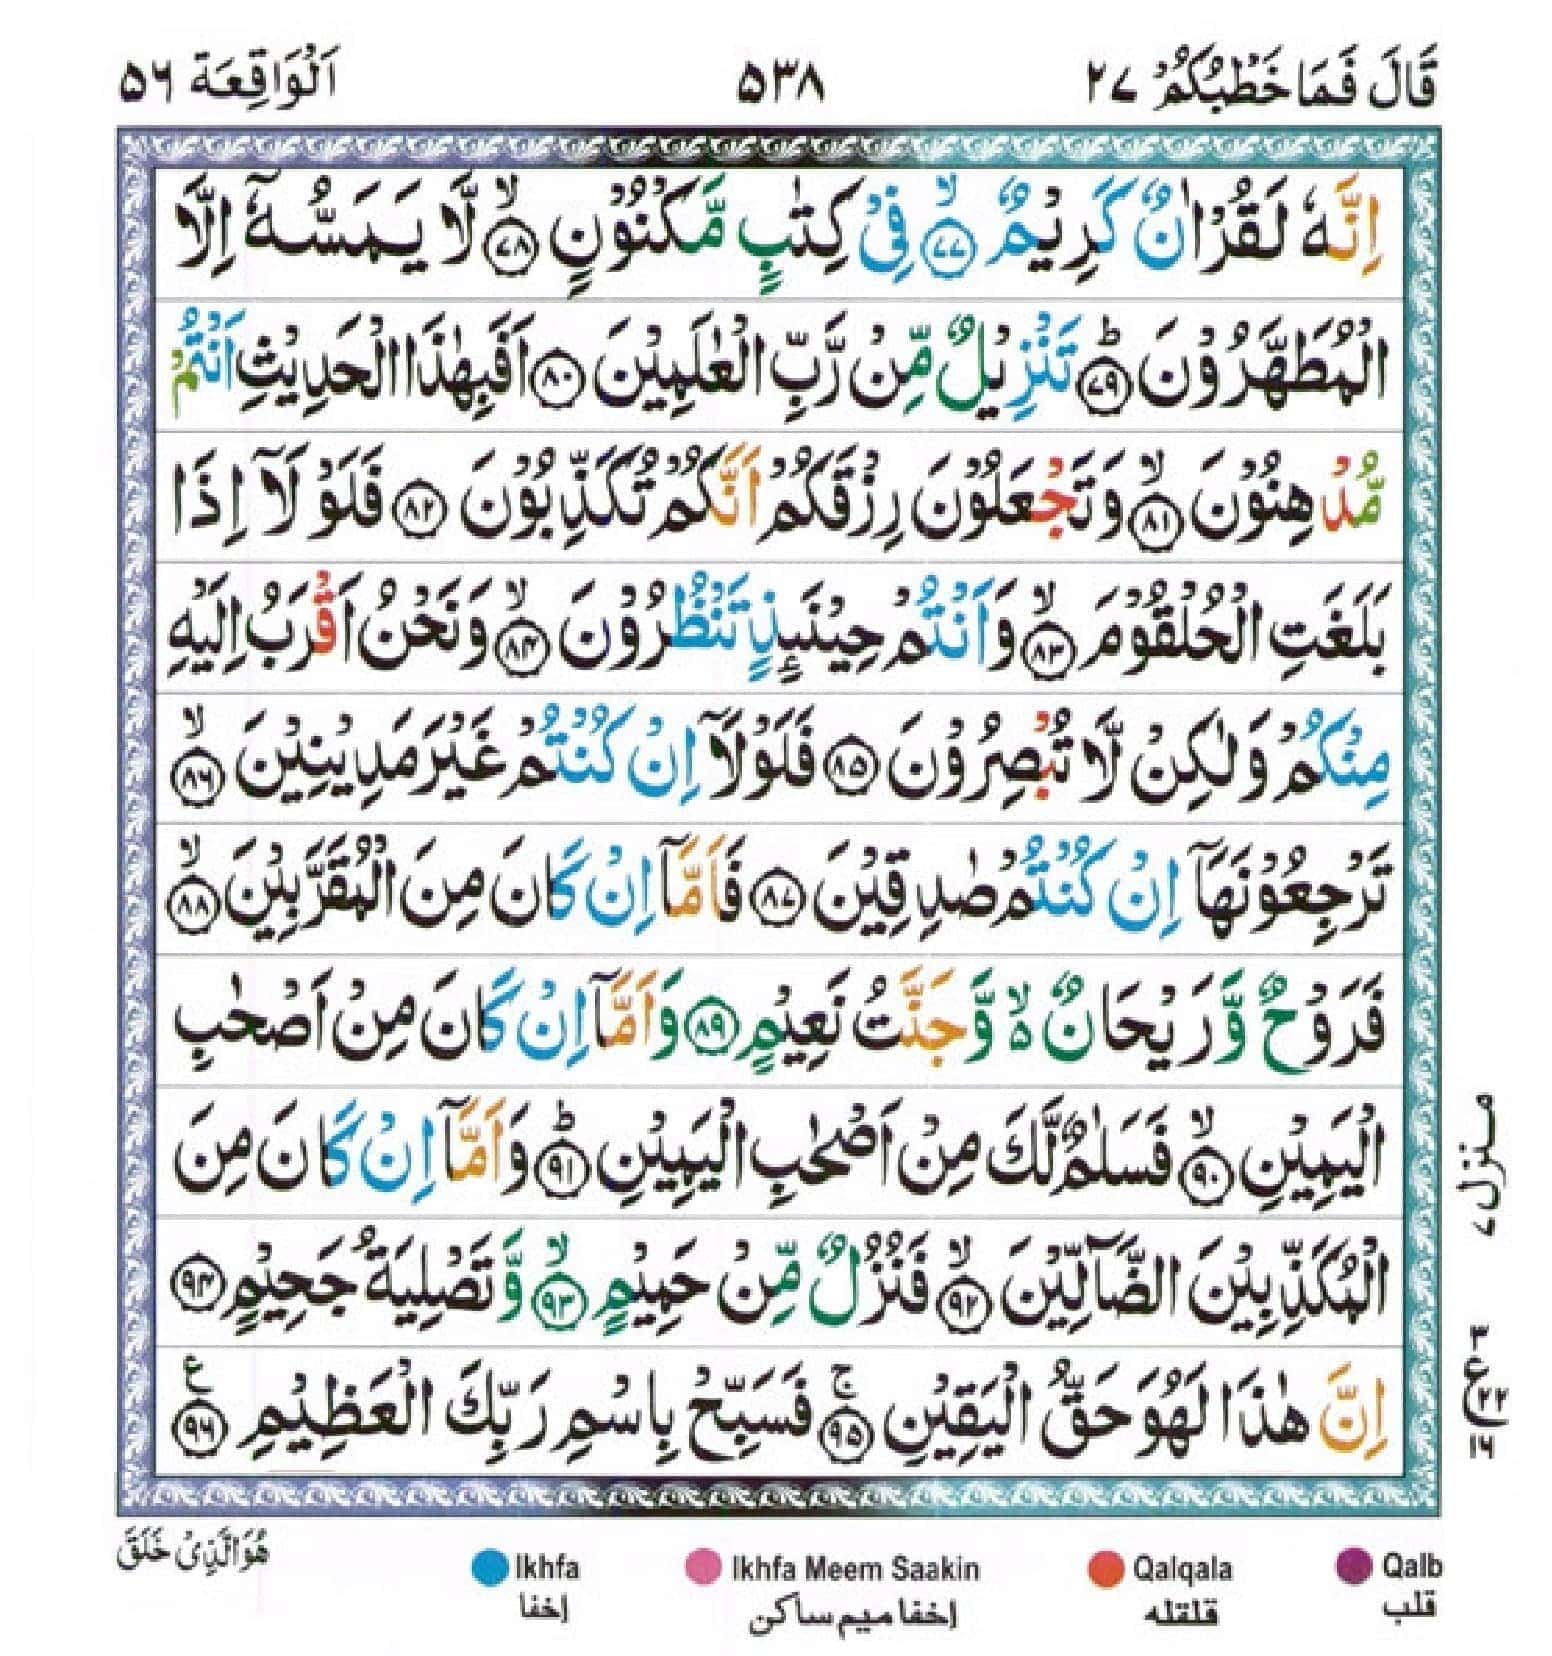 قَالَ فَمَا خَطْبُكُمْ ۲۷ ۵۳۸ اَلْوَاقِعَة ۵۶
اِنَّهٗ لَقُرْاٰنٌ كَرِيْمٌ ۙ‏﴿۷۷﴾ فِىْ كِتٰبٍ مَّكْنُوْنٍ ۙ‏﴿۷۸﴾ لَّا يَمَسُّهٗۤ اِلَّا
الْمُطَهَّرُوْنَ ؕ‏﴿۷۹﴾ تَنْزِيْلٌ مِّنْ رَّبِّ الْعٰلَمِيْنَ ﴿۸۰﴾ اَفَبِهٰذَا الْحَدِيْثِ اَنْتُمْ
مُّدْهِنُوْنَ ۙ‏﴿۸۱﴾ وَتَجْعَلُوْنَ رِزْقَكُمْ اَنَّكُمْ تُكَذِّبُوْنَ ﴿۸۲﴾ فَلَوْ لَاۤ اِذَا
بَلَغَتِ الْحُلْقُوْمَ ۙ‏﴿۸۳﴾ وَاَنْتُمْ حِيْنَئِذٍ تَنْظُرُوْنَ ۙ‏﴿۸۴﴾ وَنَحْنُ اَقْرَبُ اِلَيْهِ
مِنْكُمْ وَلٰكِنْ لَّا تُبْصِرُوْنَ ﴿۸۵﴾ فَلَوْلَاۤ اِنْ كُنْتُمْ غَيْرَ مَدِيْنِيْنَ ۙ‏﴿۸۶﴾
تَرْجِعُوْنَهَاۤ اِنْ كُنْتُمْ صٰدِقِيْنَ ﴿۸۷﴾ فَاَمَّاۤ اِنْ كَانَ مِنَ الْمُقَرَّبِيْنَ ۙ‏﴿۸۸﴾
فَرَوْحٌ وَّرَيْحَانٌ ۙ۬ وَّجَنَّتُ نَعِيْمٍ ﴿۸۹﴾ وَاَمَّاۤ اِنْ كَانَ مِنْ اَصْحٰبِ
الْيَمِيْنِ ۙ‏﴿۹۰﴾ فَسَلٰمٌ لَّكَ مِنْ اَصْحٰبِ الْيَمِيْنِ ؕ‏﴿۹۱﴾ وَاَمَّاۤ اِنْ كَانَ مِنَ
الْمُكَذِّبِيْنَ الضَّآلِّيْنَ ۙ‏﴿۹۲﴾ فَنُزُلٌ مِّنْ حَمِيْمٍ ۙ‏﴿۹۳﴾ وَّتَصْلِيَةُ جَحِيْمٍ ﴿۹۴﴾
اِنَّ هٰذَا لَهُوَ حَقُّ الْيَقِيْنِ ۚ‏﴿۹۵﴾ فَسَبِّحْ بِاسْمِ رَبِّكَ الْعَظِيْمِ ﴿۹۶﴾ ع
منزل ۷
۳
ع ۲۲
۱۶
هُوَ الَّذِىْ خَلَقَ
Ikhfa Ikhfa Meem Saakin Qalqala Qalb
إخفا إخفا ميم ساكن قلقله قلب